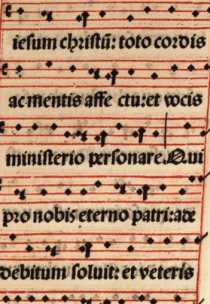 iesum christū: toto cordis
ac mentis affe ctu: et vocis
ministerio personare. Qui
pro nobis eterno patri: ade
debitum soluit: et veteris